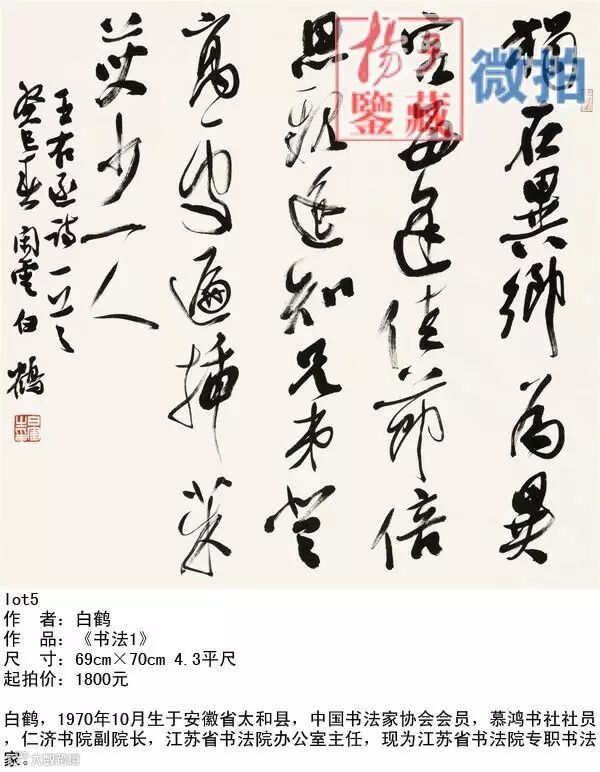 獨在異鄉為異
客每逢佳節倍
思親遙知兄弟登
高處遍插茱
萸少一人
王右丞诗一首
癸巳春 閑雲白鶴
杨
鑒藏
微拍
lot5
作 者：白鹤
作 品：《书法1》
尺 寸：69cm×70cm 4.3平尺
起拍价：1800元
白鹤，1970年10月生于安徽省太和县，中国书法家协会会员，慕鸿书社社员
，仁济书院副院长，江苏省书法院办公室主任，现为江苏省书法院专职书法
家。